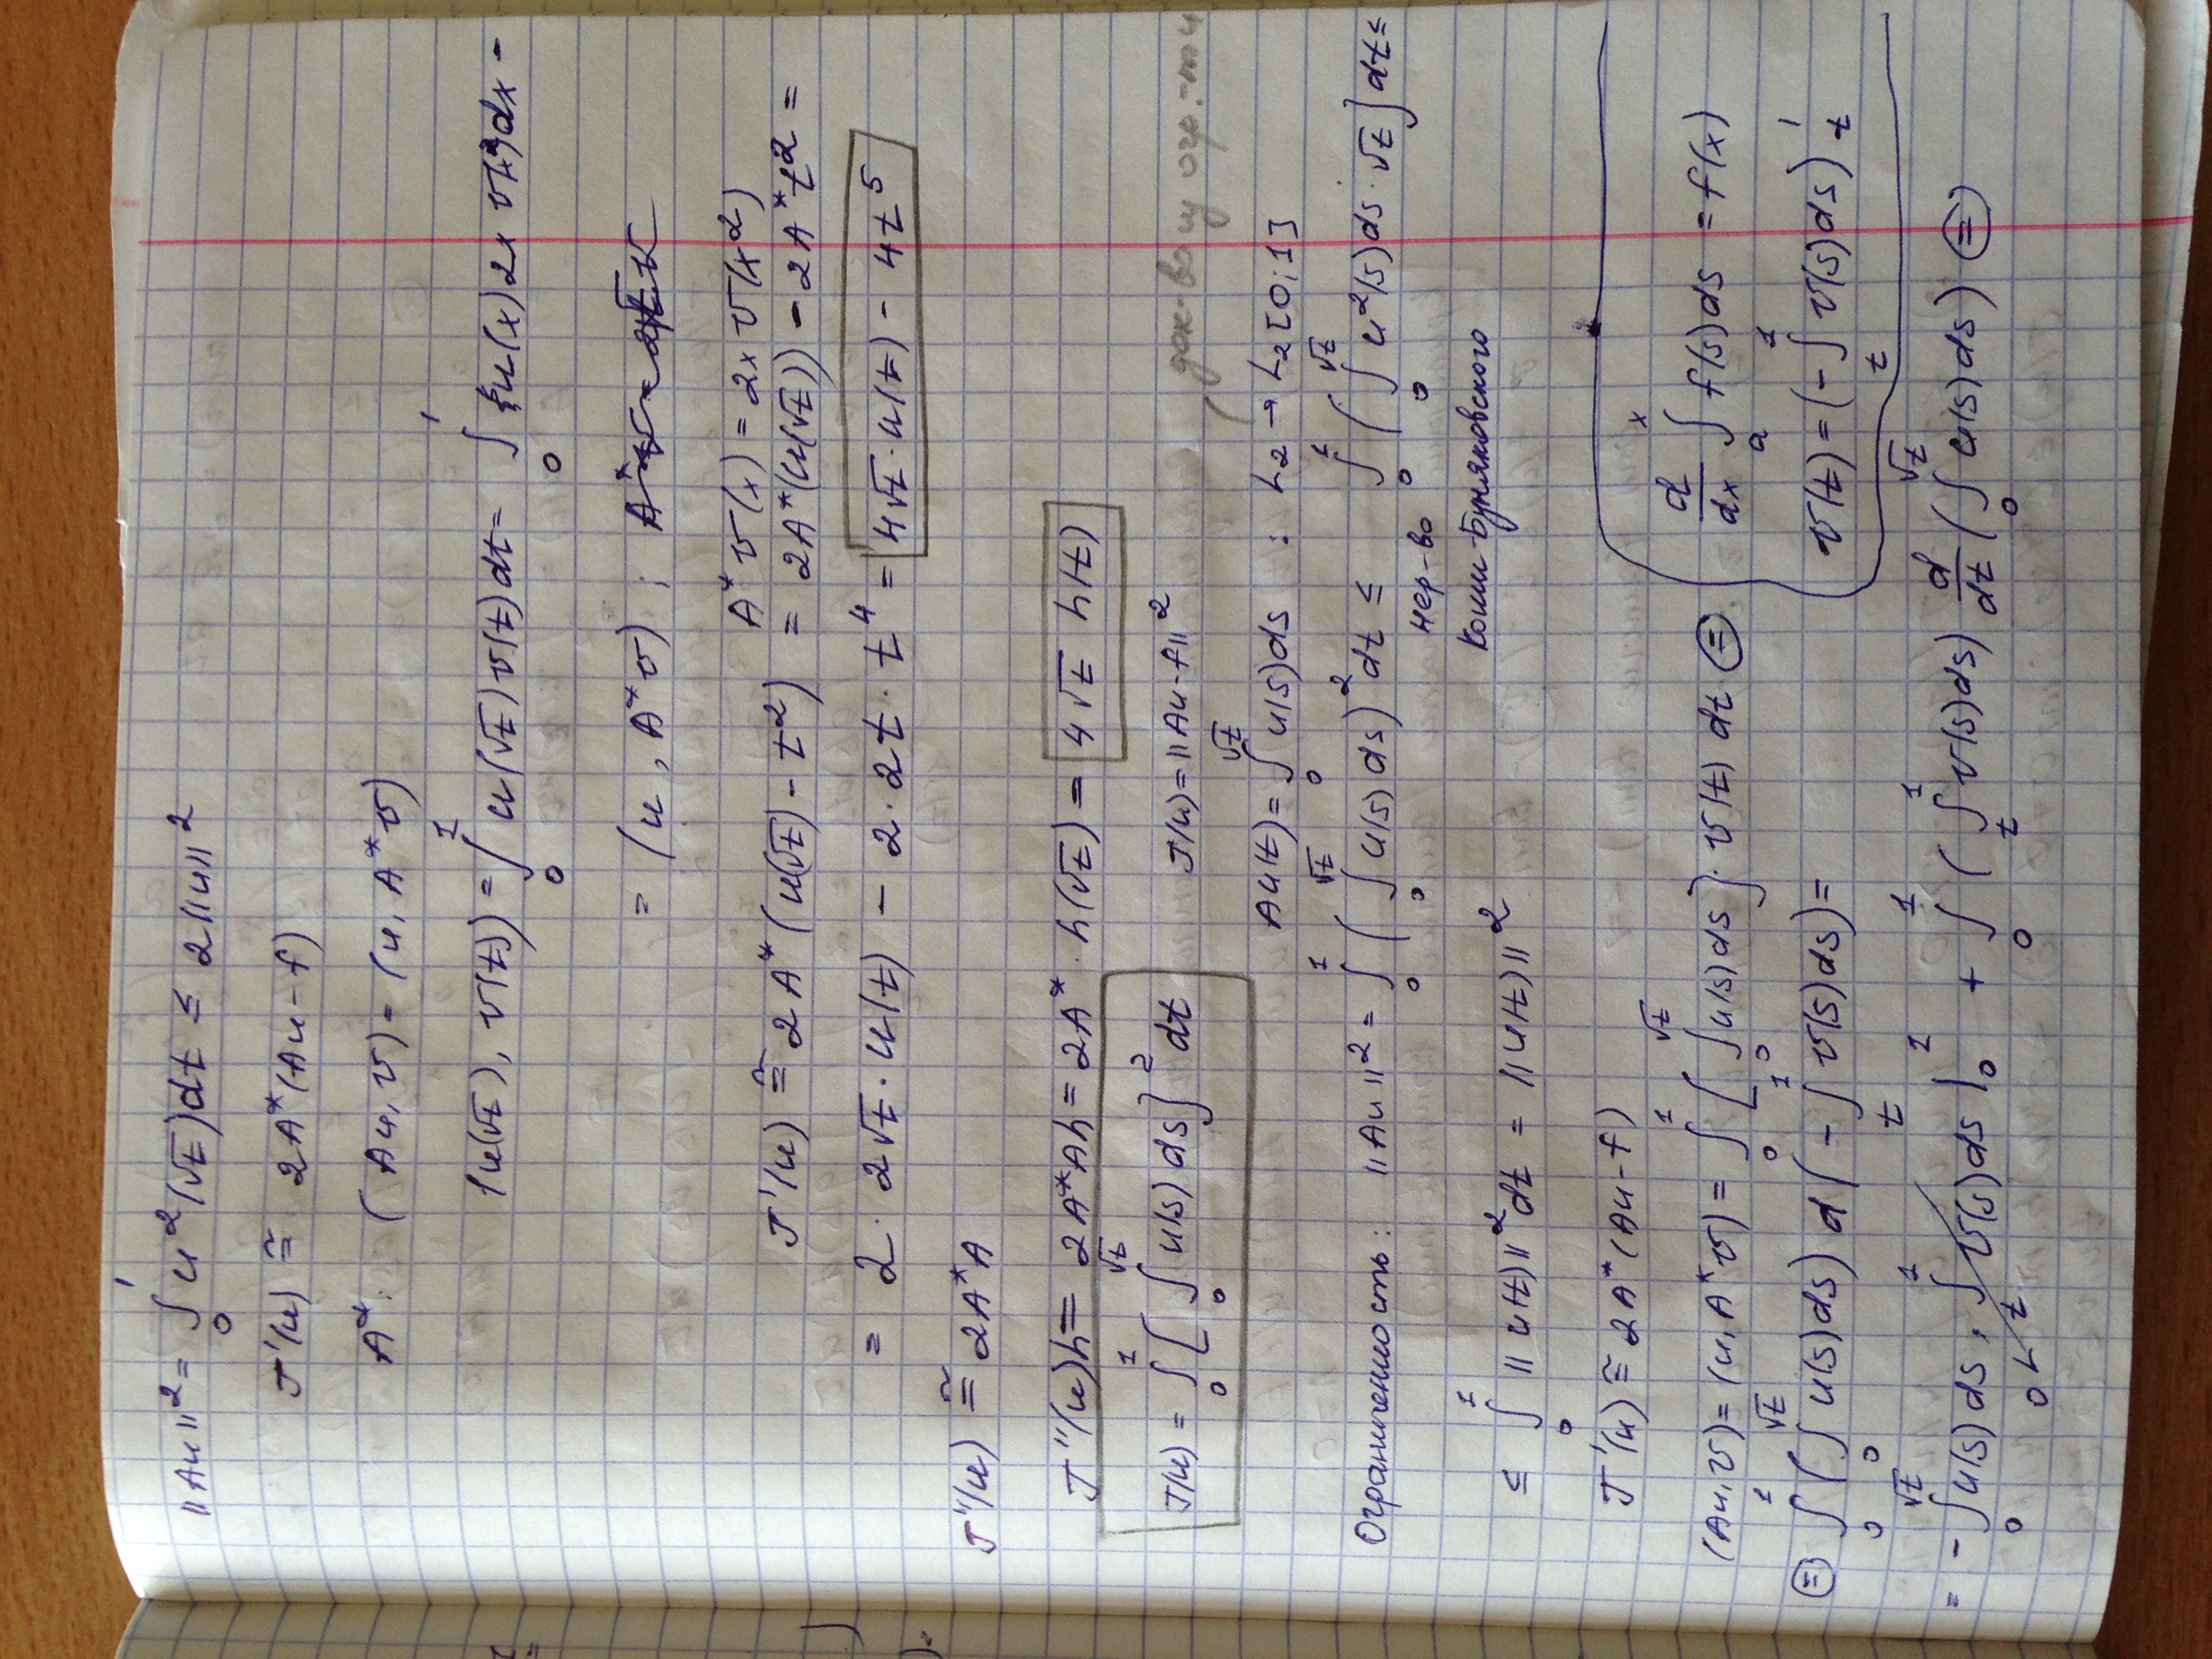 ||Au||² = ∫₀¹ u²(√t)dt ≤ 2||u||²
J'(u) ≅ 2A*(Au-f)
A*: (Au, v) = (u, A*v)
(u(√t), v(t)) = ∫₀¹ u(√t) v(t)dt = ∫₀¹ u(x) 2x v(x²)dx =
= (u, A*v) ;
A*v(x) = 2x v(x²)
J'(u) ≅ 2A*(u(√t) - t²) = 2A*(u(√t)) - 2A*t² =
= 2·2√t·u(t) - 2·2t·t⁴ = 4√t·u(t) - 4t⁵
J''(u) ≅ 2A*A
J''(u)h = 2A*Ah = 2A*·h(√t) = 4√t h(t)
J(u) = ∫₀¹ [∫₀^√t u(s)ds]² dt J(u) = ||Au-f||²
(док-во у огр.-ти
Au(t) = ∫₀^√t u(s)ds : L₂ → L₂[0;1]
Ограниченность: ||Au||² = ∫₀¹ (∫₀^√t u(s)ds)² dt ≤ ∫₀¹ (∫₀^√t u²(s)ds·√t] dt ≤
нер-во
Коши-Буняковского
≤ ∫₀¹ ||u(t)||² dt = ||u(t)||²
J'(u) ≅ 2A*(Au-f)
(Au, v) = (u, A*v) = ∫₀¹ [∫₀^√t u(s)ds]·v(t) dt ⊜
d/dx ∫ₐˣ f(s)ds = f(x)
v(t) = (-∫ₜ¹ v(s)ds)'ₜ
⊜ ∫₀¹ (∫₀^√t u(s)ds) d(-∫ₜ¹ v(s)ds) =
= -∫₀^√t u(s)ds · ∫ₜ¹ v(s)ds |₀¹ + ∫₀¹ (∫ₜ¹ v(s)ds) d/dt (∫₀^√t u(s)ds) ⊜
0